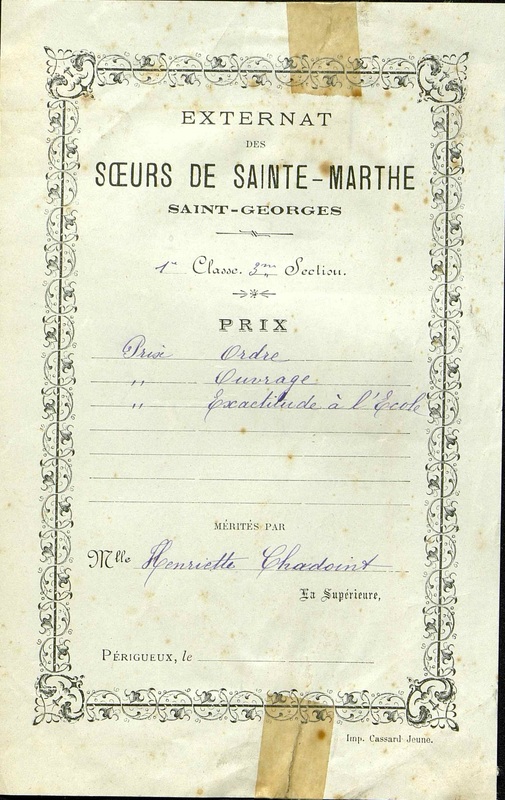 EXTERNAT
DES
SŒURS DE SAINTE-MARTHE
SAINT-GEORGES
1re Classe. 3me Section.
PRIX
Prix Ordre
" Ouvrage
" Exactitude à l'Ecole
MÉRITÉS PAR
Mlle Henriette Chadoint
La Supérieure,
PÉRIGUEUX, le
Imp. Cassard Jeune.